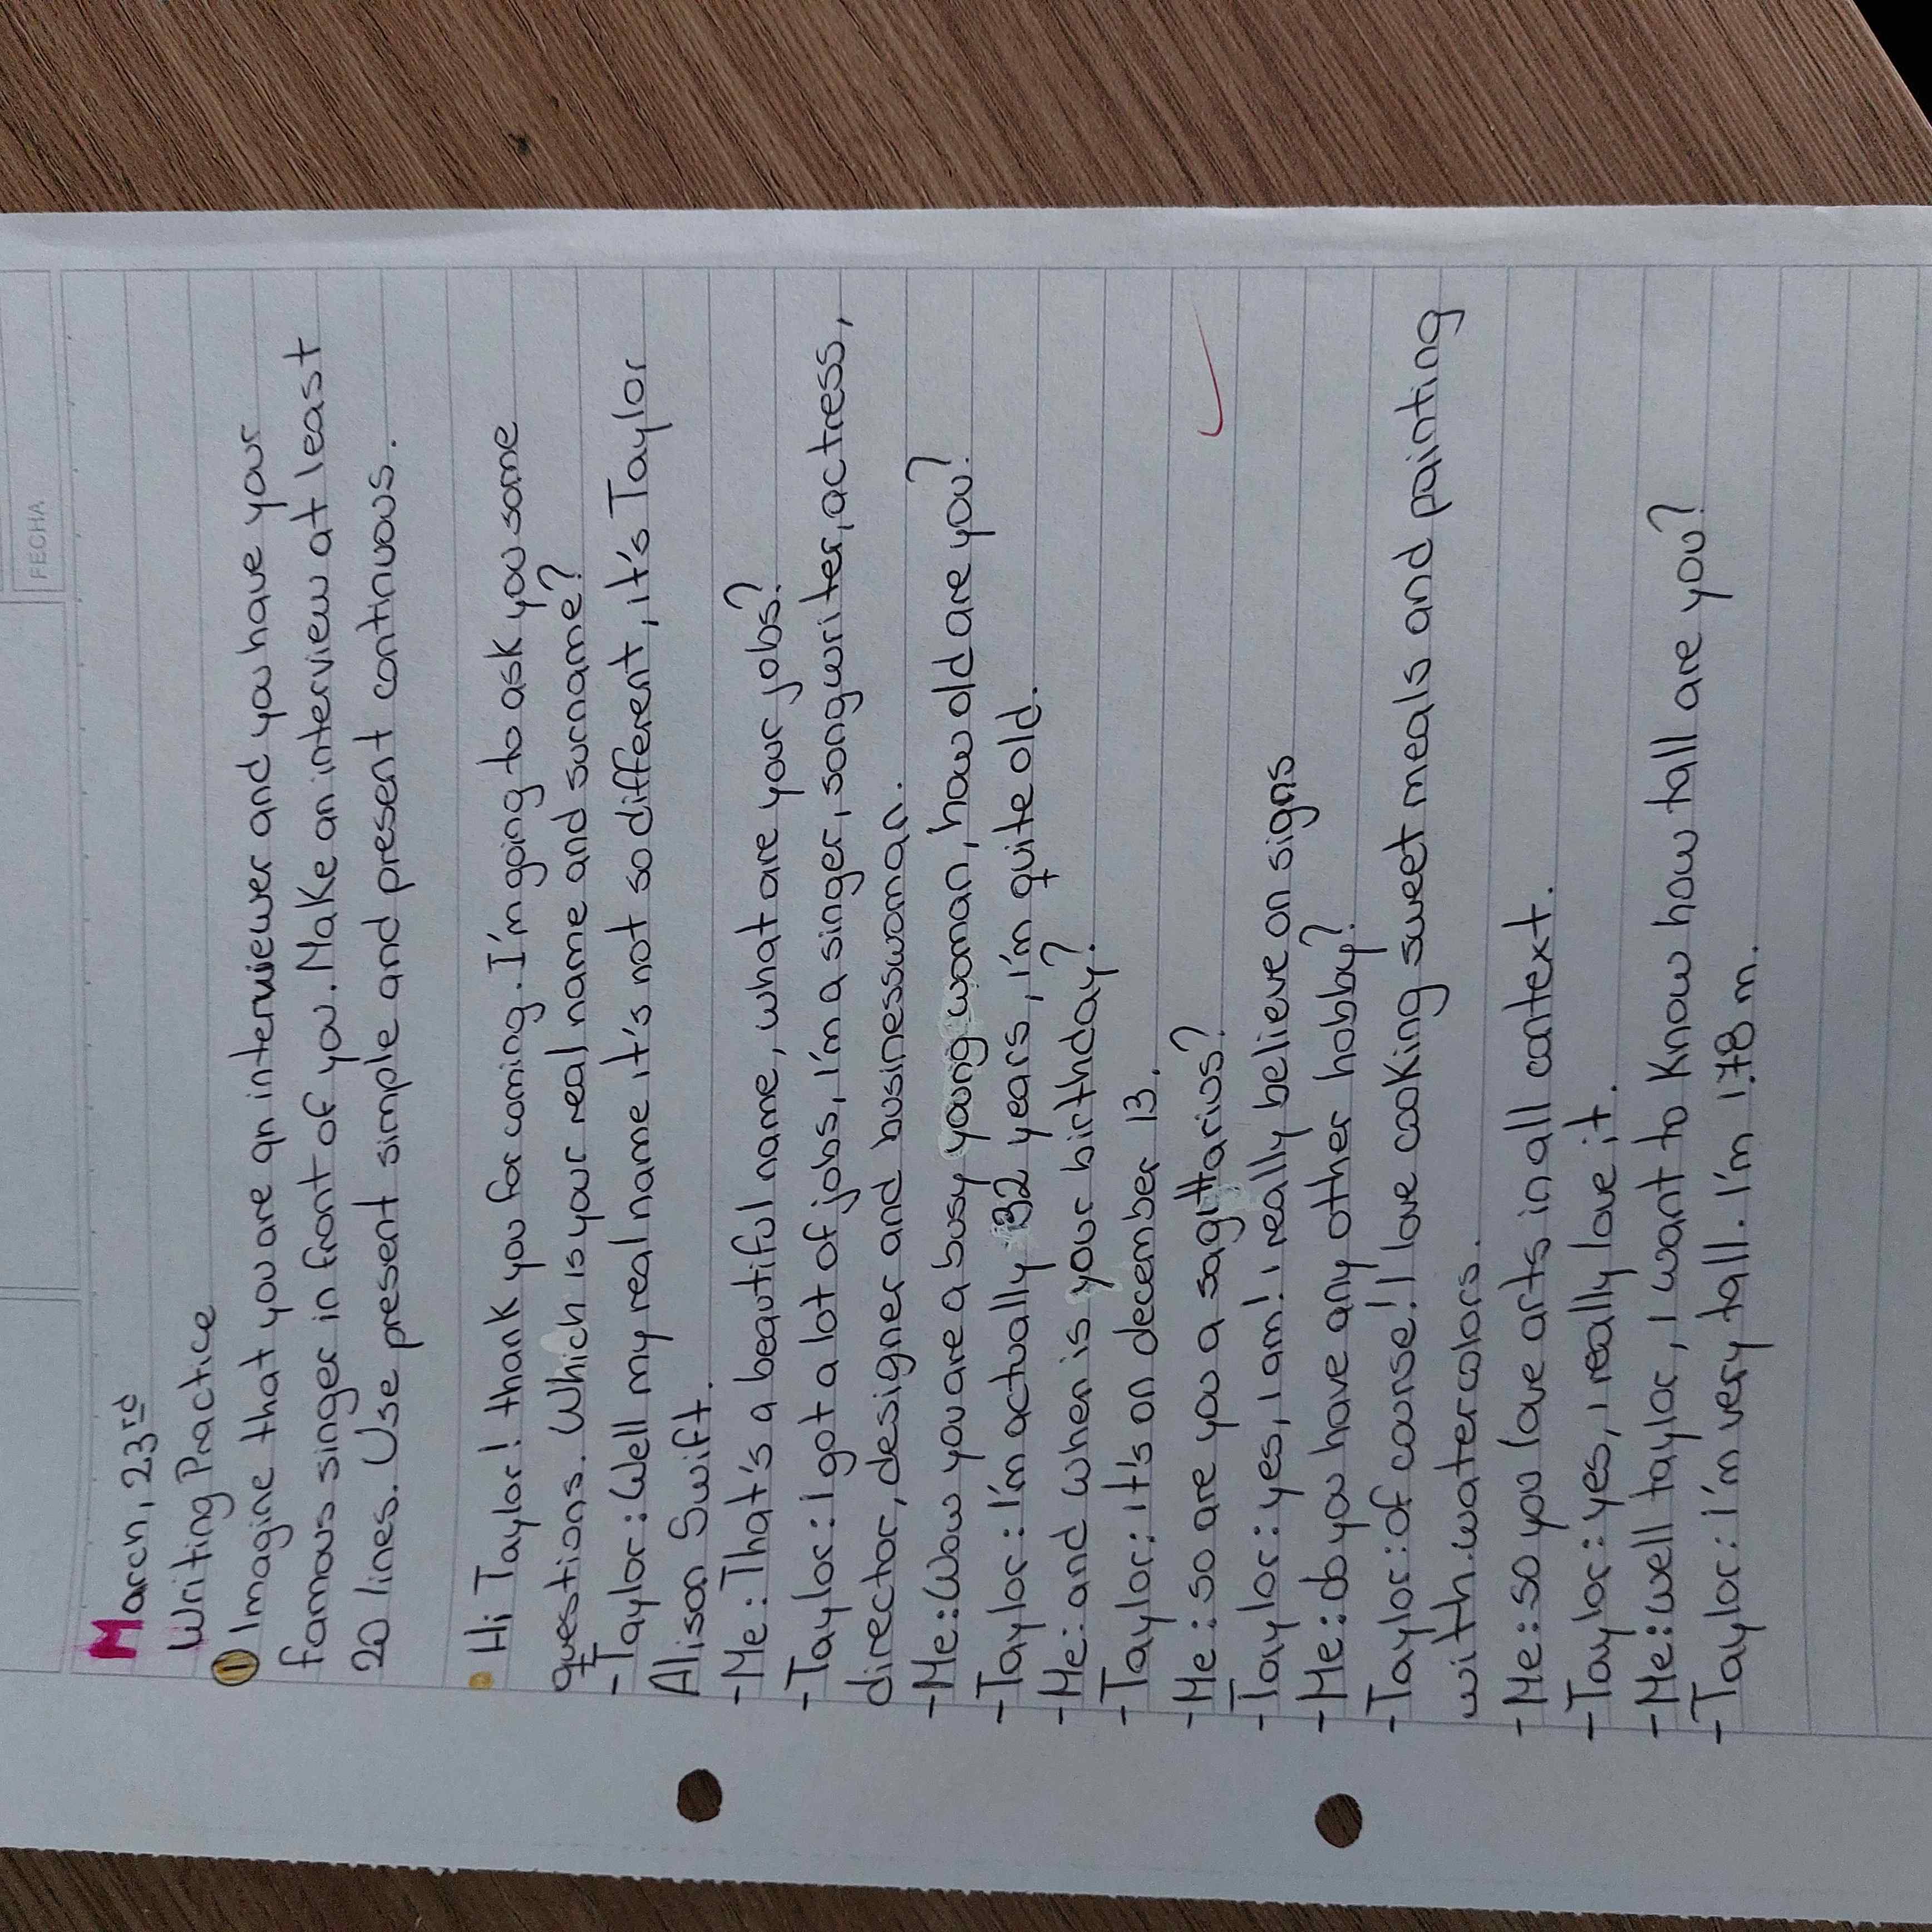 FECHA
March, 23rd
Writing Practice
① Imagine that you are an interviewer and you have your
famous singer in front of you. Make an interview at least
20 lines. Use present simple and present continuous.
• Hi Taylor! thank you for coming. I'm going to ask you some
questions. Which is your real name and surname?
- Taylor: Well my real name it's not so different, it's Taylor
Alison Swift.
- Me: That's a beautiful name, what are your jobs?
- Taylor: I got a lot of jobs, I'm a singer, songwriter, actress,
director, designer and businesswoman.
- Me: Wow you are a busy young woman, how old are you?
- Taylor: I'm actually 32 years, I'm quite old.
- Me: and when is your birthday?
- Taylor: it's on december 13.
- Me: so are you a sagittarius?
- Taylor: yes, i am! i really believe on signs
- Me: do you have any other hobby?
- Taylor: of course! I love cooking sweet meals and painting
with watercolors.
- Me: so you love arts in all context.
- Taylor: yes, i really love it.
- Me: well taylor, i want to know how tall are you?
- Taylor: I'm very tall. I'm 1.78 m.